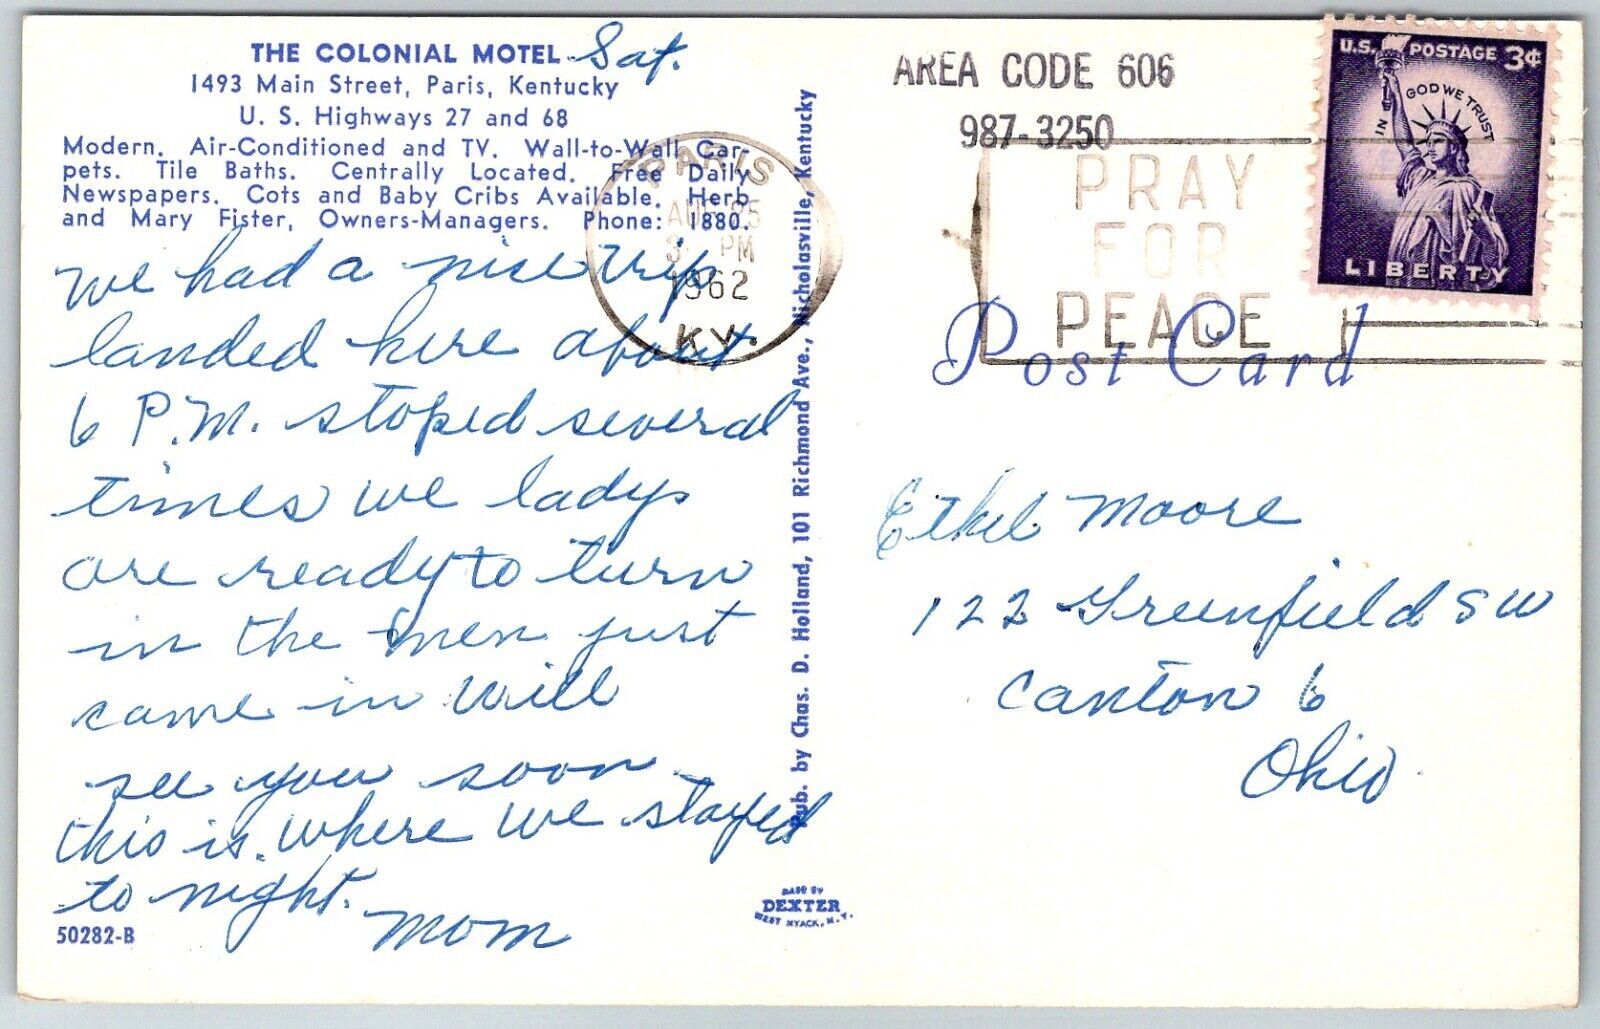 THE COLONIAL MOTEL Sat.
1493 Main Street, Paris, Kentucky
U. S. Highways 27 and 68
Modern. Air-Conditioned and TV. Wall-to-Wall Car-
pets. Tile Baths. Centrally Located. Free Daily
Newspapers. Cots and Baby Cribs Available. Herb
and Mary Fister, Owners-Managers. Phone: 1880.
We had a nise trip
landed here about
6 P.M. stoped several
times we ladys
are ready to turn
in the men just
came in will
see you soon
this is where we stayed
to night.
Mom
50282-B
Pub. by Chas. D. Holland, 101 Richmond Ave., Nicholasville, Kentucky
MADE BY
DEXTER
WEST NYACK, N.Y.
PARIS
AUG 25
3 PM
1962
KY.
AREA CODE 606
987-3250
PRAY
FOR
PEACE
U.S. POSTAGE 3¢
IN GOD WE TRUST
LIBERTY
Post Card
Ethel Moore
122 Greenfield SW
Canton 6
Ohio